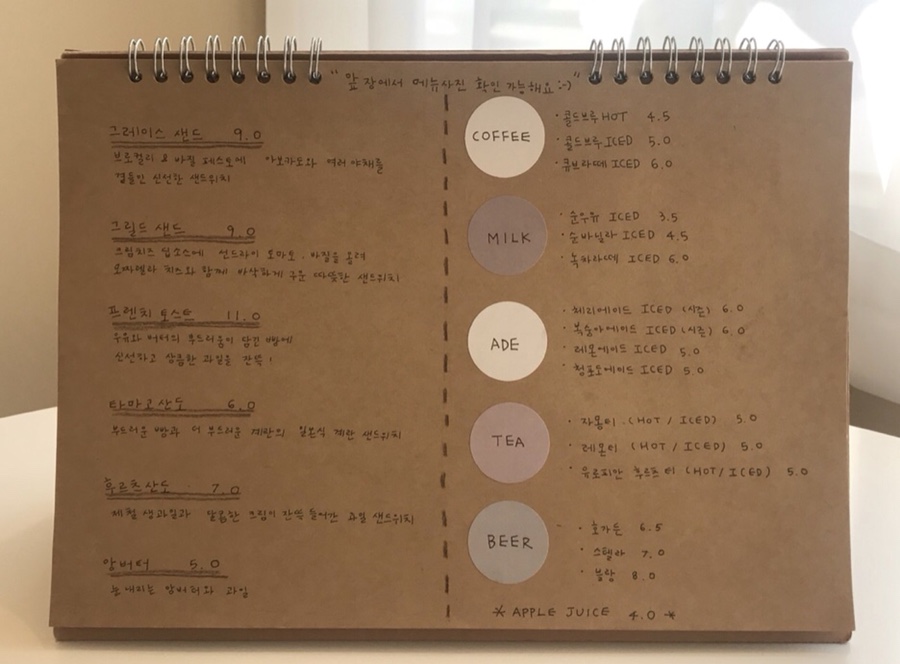 "앞 장에서 메뉴사진 확인 가능해요 :-)"
그레이스 샌드 9.0
브로컬리 & 바질 페스토에 아보카도와 여러 야채를
곁들인 신선한 샌드위치
그릴드 샌드 9.0
크림치즈 딥소스에 썬드라이 토마토, 바질을 올려
모짜렐라 치즈와 함께 바삭하게 구운 따뜻한 샌드위치
프렌치 토스트 11.0
우유와 버터의 부드러움이 담긴 빵에
신선하고 상큼한 과일을 잔뜩!
타마고산도 6.0
부드러운 빵과 더 부드러운 계란의 일본식 계란 샌드위치
후르츠산도 7.0
제철 생과일과 달콤한 크림이 잔뜩 들어간 과일 샌드위치
앙버터 5.0
앙버터와 과일
COFFEE
· 콜드브루 HOT 4.5
· 콜드브루 ICED 5.0
· 큐브라떼 ICED 6.0
MILK
· 순우유 ICED 3.5
· 순바닐라 ICED 4.5
· 녹차라떼 ICED 6.0
ADE
· 체리에이드 ICED (시즌) 6.0
· 복숭아에이드 ICED (시즌) 6.0
· 레몬에이드 ICED 5.0
· 청포도에이드 ICED 5.0
TEA
· 자몽티 (HOT / ICED) 5.0
· 레몬티 (HOT / ICED) 5.0
· 유로피안 후르츠 티 (HOT / ICED) 5.0
BEER
· 호가든 6.5
· 스텔라 7.0
· 블랑 8.0
* APPLE JUICE 4.0 *